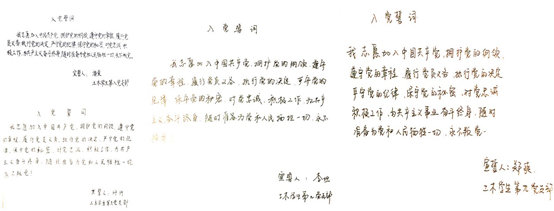 入党誓词
我志愿加入中国共产党，拥护党的纲领，遵守党的章程，履行党
员义务，执行党的决定，严守党的纪律，保守党的秘密，对党忠诚，积
极工作，为共产主义奋斗终身，随时准备为党和人民牺牲一切，永不叛党。
宣誓人：
入党誓词
我志愿加入中国共产党，拥护党的纲领，遵守党
的章程，履行党员义务，执行党的决定，严守党的纪
律，保守党的秘密，对党忠诚，积极工作，为共产
主义奋斗终身，随时准备为党和人民牺牲一切，
永不叛党！
宣誓人：
入党誓词
我志愿加入中国共产党，拥护党的纲领，遵守
党的章程，履行党员义务，执行党的决定，严守党的
纪律，保守党的秘密，对党忠诚，积极工作，为共产
主义奋斗终身，随时准备为党和人民牺牲一切，永不
叛党。
宣誓人：
土木学生第九党支部
入党誓词
我志愿加入中国共产党，拥护党的纲领，
遵守党的章程，履行党员义务，执行党的决定，
严守党的纪律，保守党的秘密，对党忠诚，
积极工作，为共产主义事业奋斗终身，随时
准备为党和人民牺牲一切，永不叛党。
宣誓人：郑
土木学生第九党支部